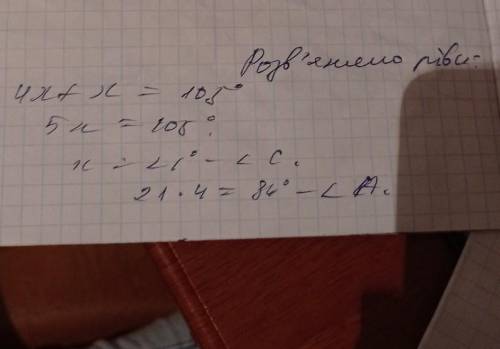 Розв'яжемо рівн:
4x + x = 105°
5x = 105°
x = 21° - ∠ C.
21 · 4 = 84° - ∠ A.